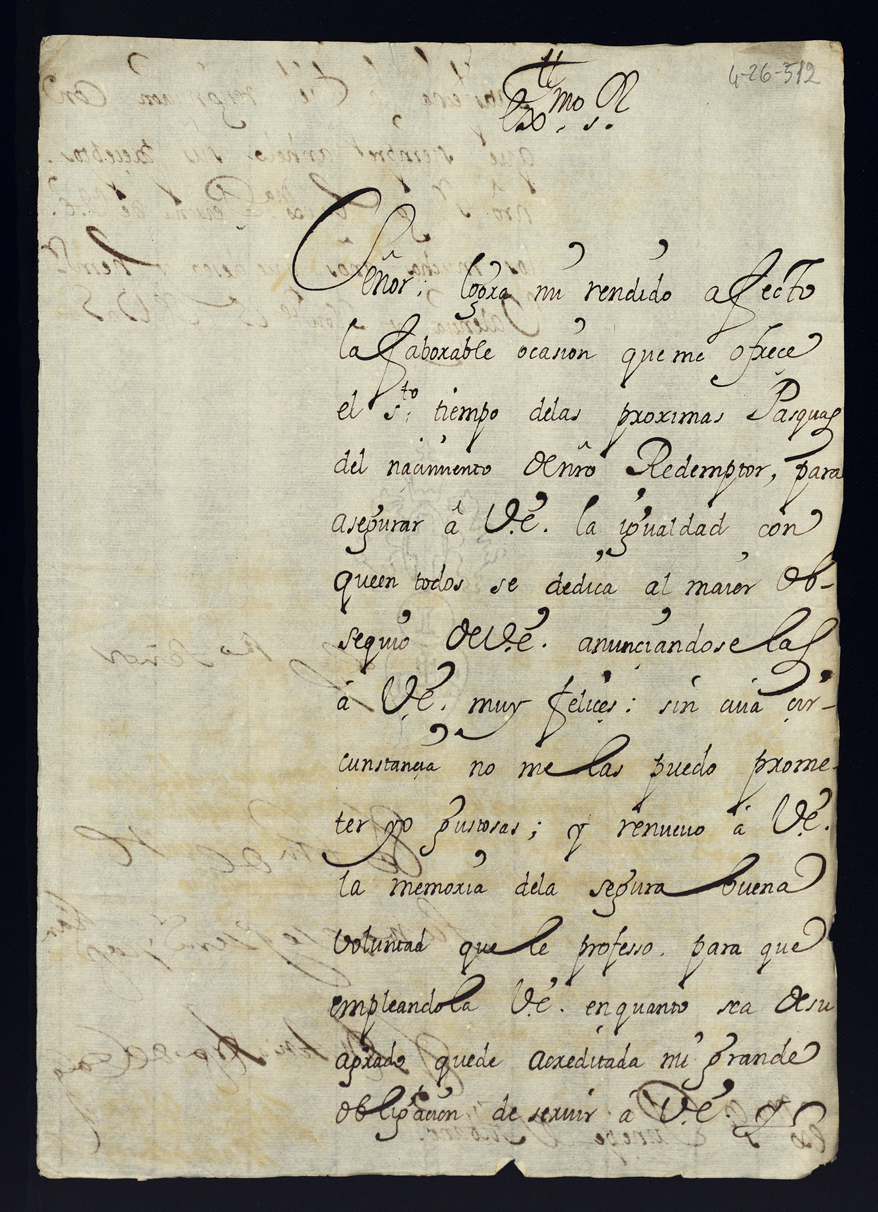 4-26-512
Exmo. Sr.
Señor; logra mi rendido afecto
la faborable ocasion que me ofrece
el sto. tiempo delas proximas Pasquas
del nacimiento de nro Redemptor, para
asegurar â V.e. la igualdad con
que en todos se dedica al maior ob-
sequio de V.e. anunciandoselas
â V.e. muy felices: sin cuia cir-
cunstancia no me las puedo prome-
ter yo gustosas; y renuevo â V.e.
la memoria dela segura buena
Voluntad que le professo. para que
empleandola V.e. en quanto sea de su
agrado quede acreditada mi grande
obligacion de servir â V.e.